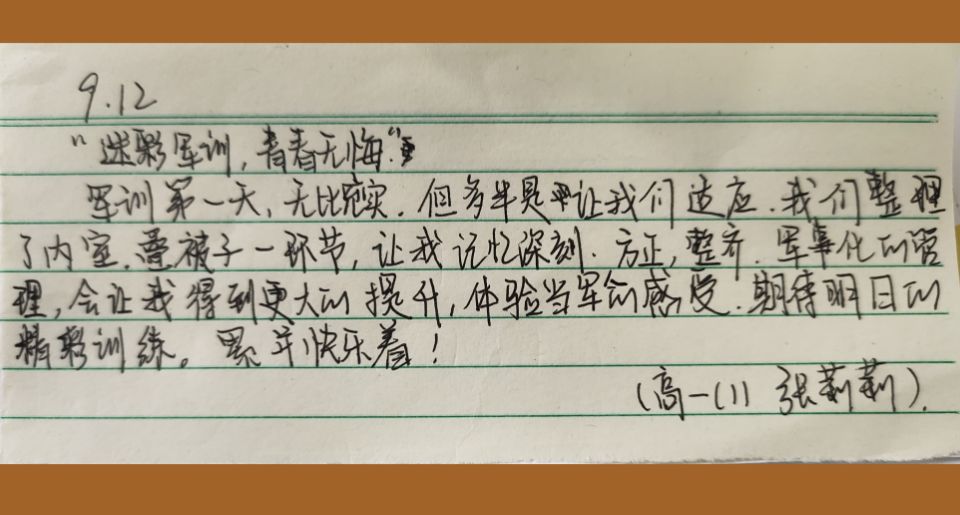 9.12
“迷彩军训，青春无悔.”
军训第一天，无比充实.但多半是让我们适应.我们整理
了内室.叠被子一环节，让我记忆深刻.方正，整齐.军事化的管
理，会让我得到更大的提升，体验当军的感受.期待明日的
精彩训练。累并快乐着！
（高一（1） 张莉莉）.